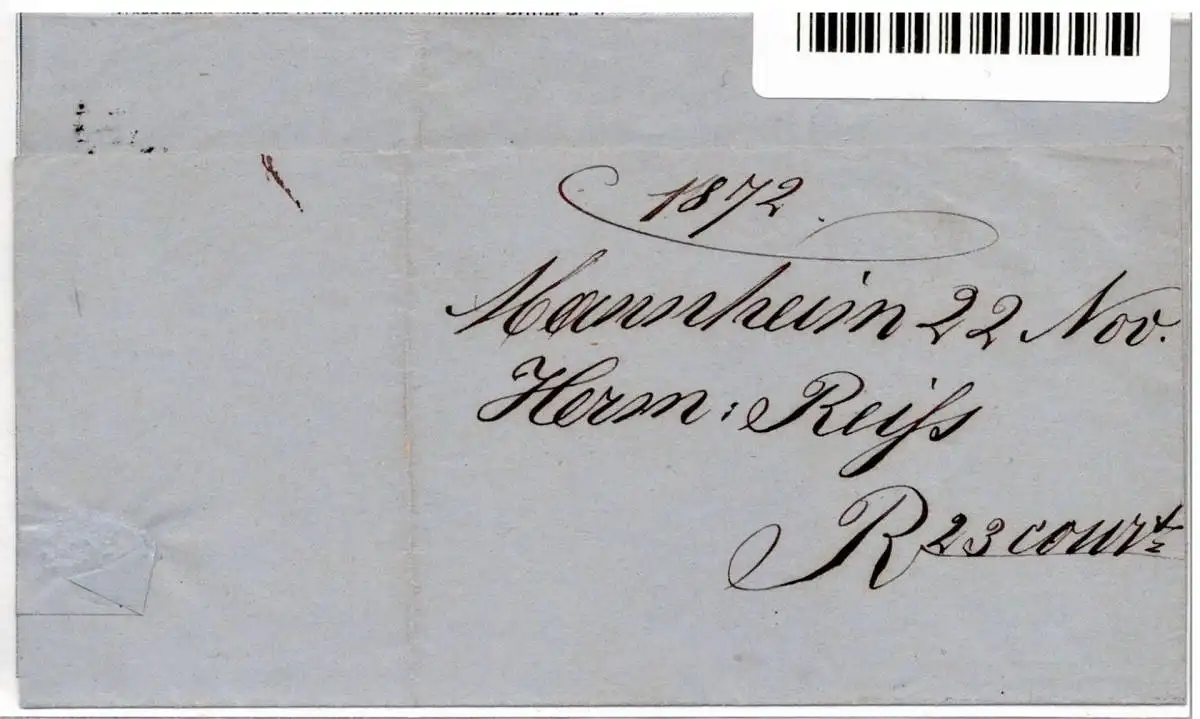 1872.
Mannheim 22 Nov.
Herm: Reiſs
R 23 court